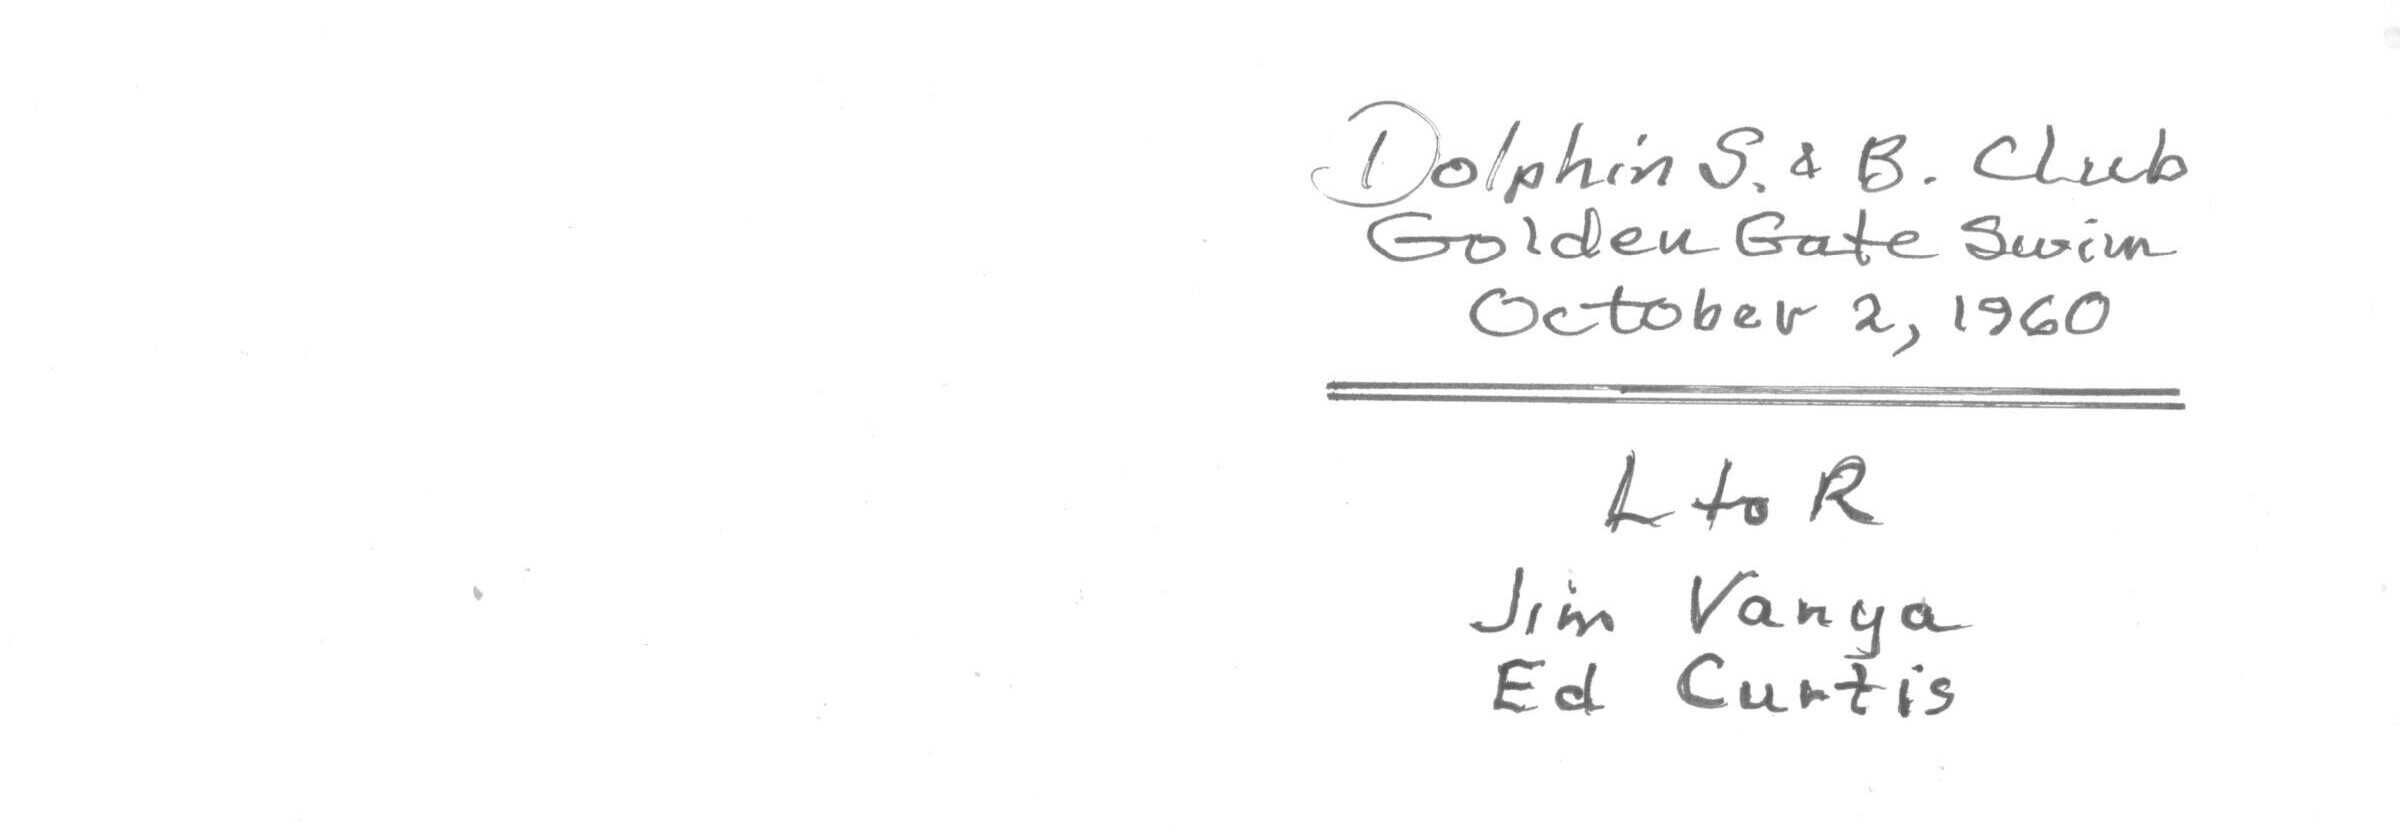 Dolphin S. & B. Club
Golden Gate Swim
October 2, 1960
L to R
Jim Vanya
Ed Curtis